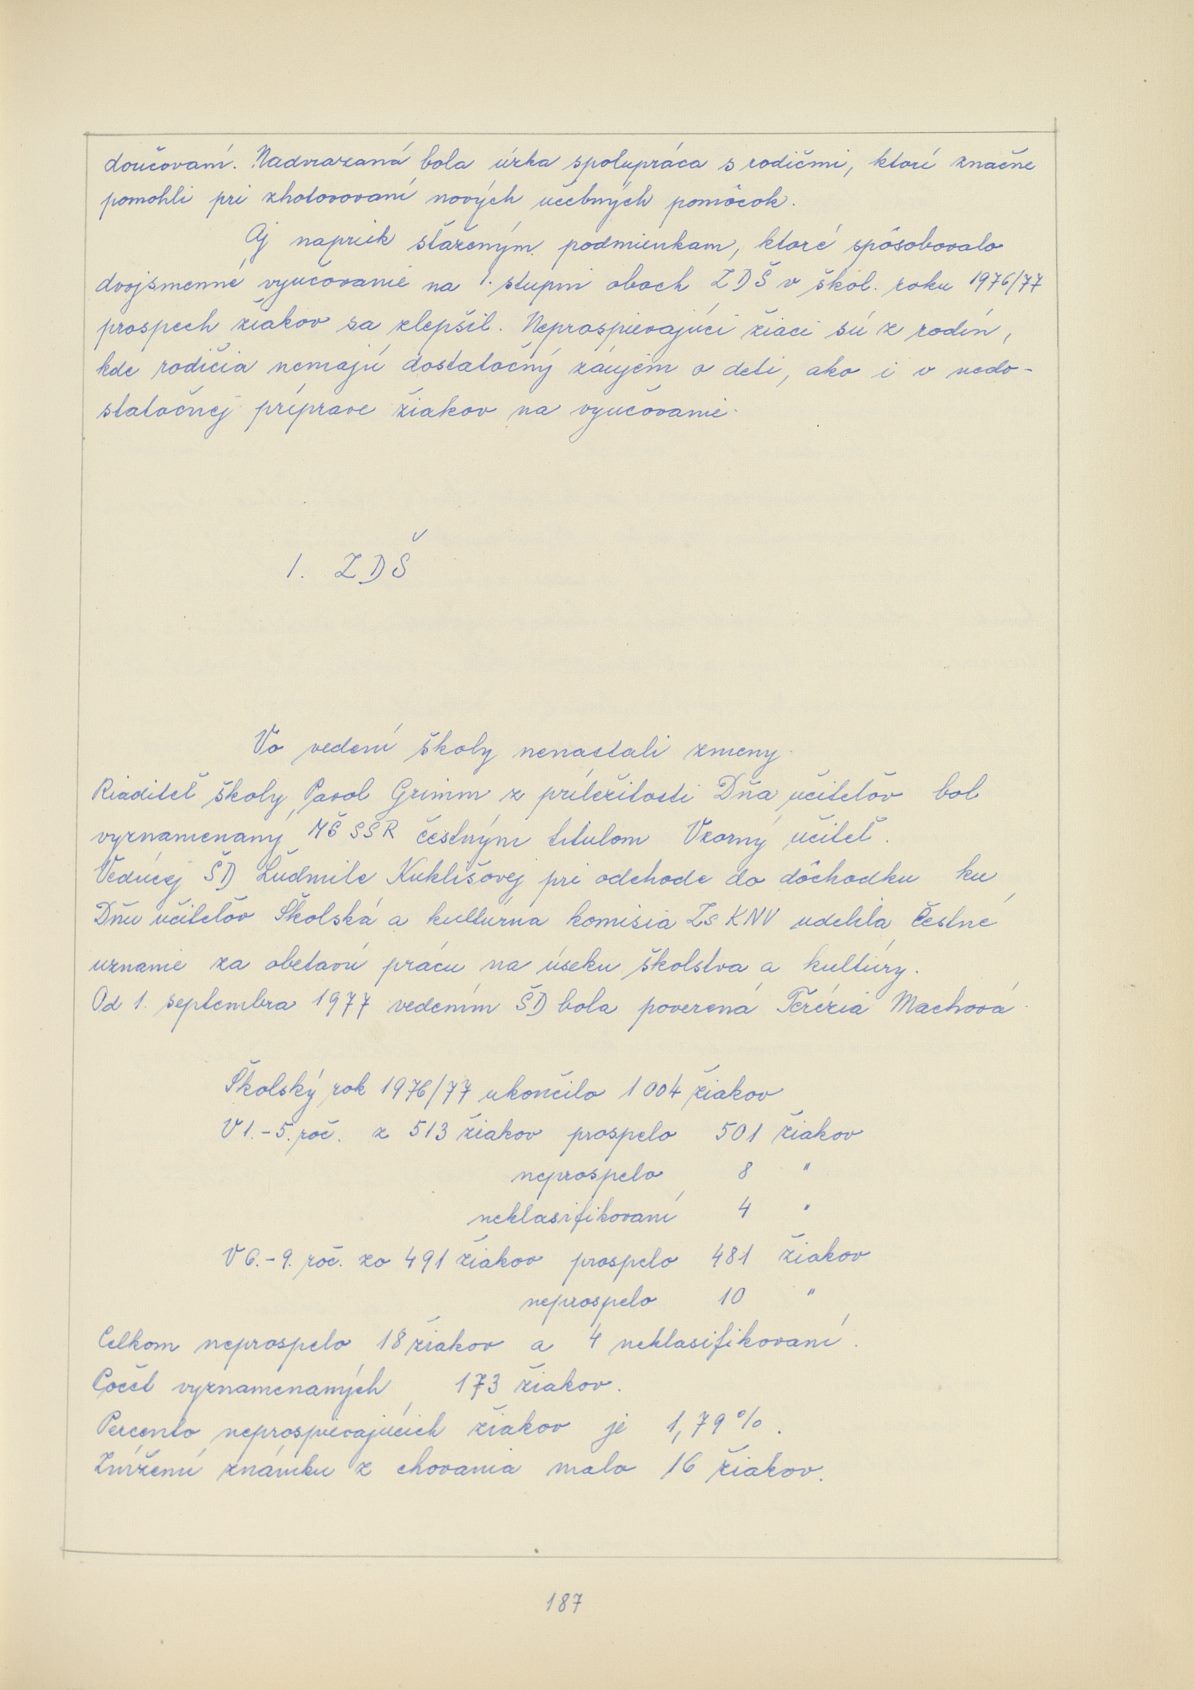 doučovaní. Nadviazaná bola úzka spolupráca s rodičmi, ktorí značne
pomohli pri zhotovovaní nových učebných pomôcok.
Aj napriek sťaženým podmienkam, ktoré spôsobovalo
dvojsmenné vyučovanie na 1. stupni oboch ZDŠ v škol. roku 1976/77
prospech žiakov sa zlepšil. Neprospievajúci žiaci sú z rodín,
kde rodičia nemajú dostatočný záujem o deti, ako i v nedo-
statočnej príprave žiakov na vyučovanie.
1. ZDŠ
Vo vedení školy nenastali zmeny.
Riaditeľ školy Pavol Grimm z príležitosti Dňa učiteľov bol
vyznamenaný MŠ SSR čestným titulom Vzorný učiteľ.
Vedúcej ŠD Ľudmile Kuklišovej pri odchode do dôchodku ku
Dňu učiteľov Školská a kultúrna komisia Zs KNV udelila Čestné
uznanie za obetavú prácu na úseku školstva a kultúry.
Od 1. septembra 1977 vedením ŠD bola poverená Terézia Machová.
Školský rok 1976/77 ukončilo 1004 žiakov
V 1.-5. roč. z 513 žiakov prospelo 501 žiakov
neprospelo 8 "
neklasifikovaní 4 "
V 6.-9. roč. zo 491 žiakov prospelo 481 žiakov
neprospelo 10 "
Celkom neprospelo 18 žiakov a 4 neklasifikovaní.
Počet vyznamenaných 173 žiakov.
Percento neprospievajúcich žiakov je 1,79 %.
Zníženú známku z chovania malo 16 žiakov.
187